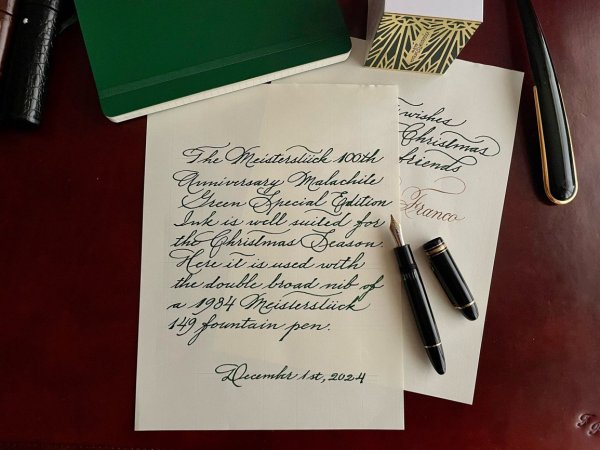 The Meisterstück 100th
Anniversary Malachite
Green Special Edition
Ink is well suited for
the Christmas Season.
Here it is used with
the double broad nib of
a 1984 Meisterstück
149 fountain pen.
December 1st, 2024
wishes
Christmas
friends
Franco